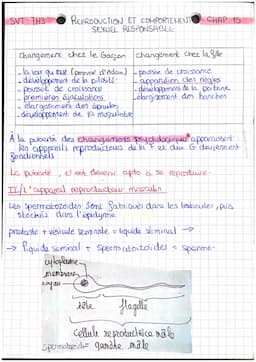 SVT TH3 REPRODUCTION ET COMPORTEMENT CHAP 15
SEXUEL RESPONSABLE
changement chez le Garçon
changement chez la fille
- la voix qui mue (pomme d'Adam)
- développement de la pilosité
- poussée de croissance
- premières éjaculations
- élargissement des épaules
- développement de la musculature
- poussée de croissance
- apparition des règles
- développement de la poitrine
- élargissement des hanches
À la puberté des changements psychologiques apparaissent
les appareils reproducteurs de la F et du G deviennent
fonctionnels
La puberté, c'est devenir apte à se reproduire.
II/ L'appareil reproducteur masculin
Les spermatozoïdes sont fabriqués dans les testicules, puis
stockés dans l'épididyme
prostate + vésicule séminale = liquide séminal →
→ liquide séminal + spermatozoïdes = sperme
cytoplasme
membrane
noyau
tête
flagelle
Cellule reproductrice mâle
spermatozoïde = gamète mâle